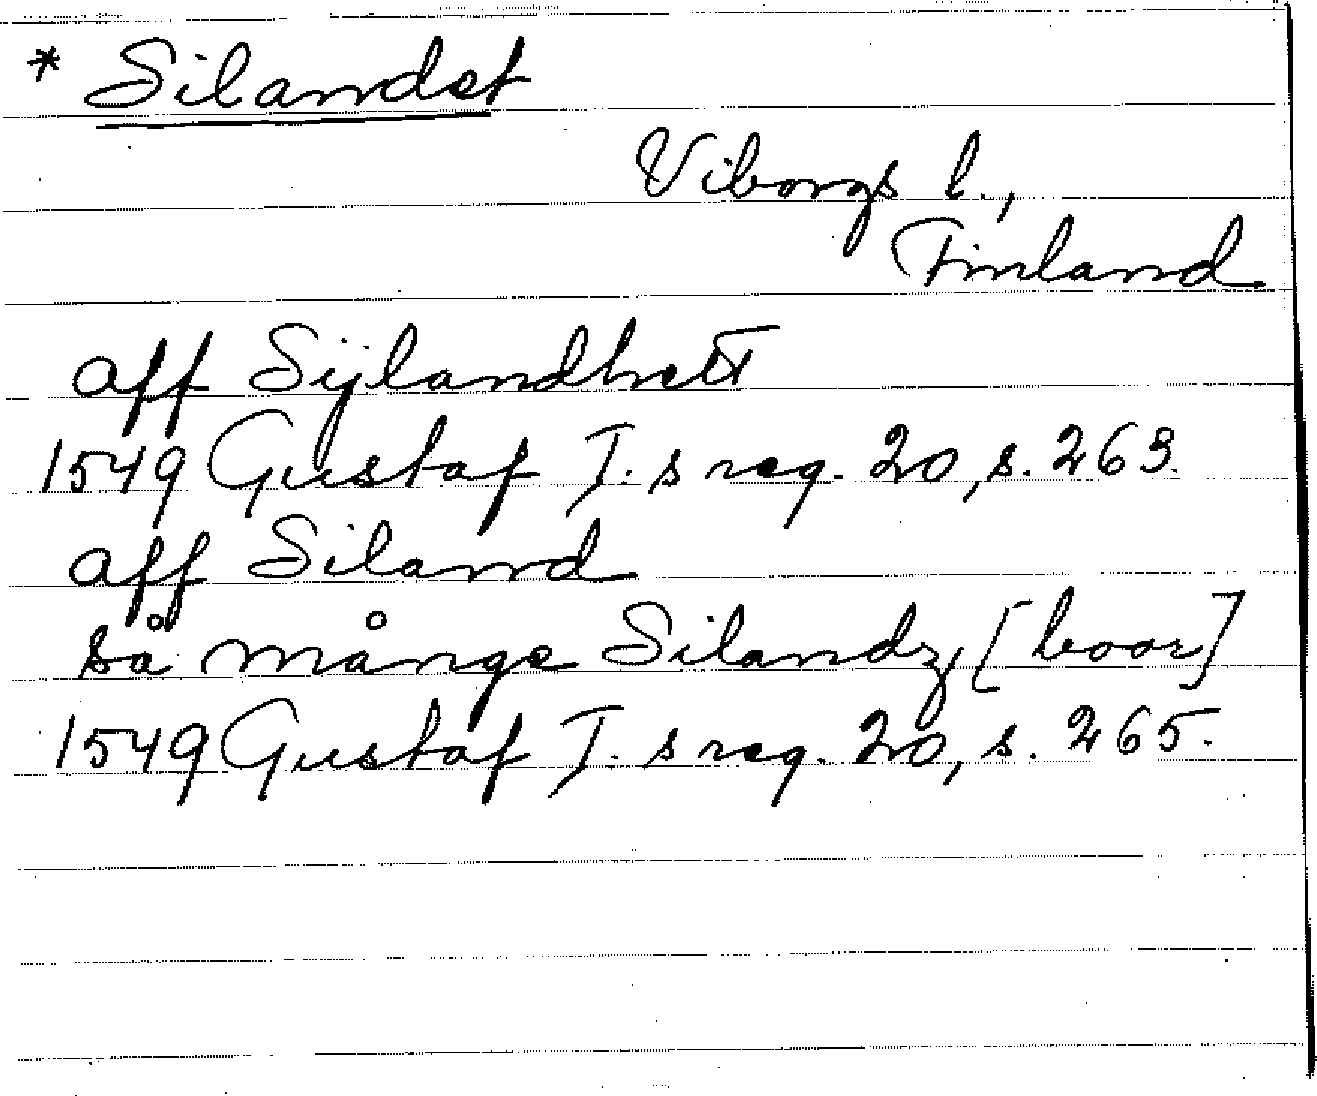 * Silandet
Viborgs l.,
Finland
aff Sijlandhett
1549 Gustaf I.s reg. 20, s. 263.
aff Siland
så månge Silandz [boar]
1549 Gustaf I.s reg. 20, s. 265.